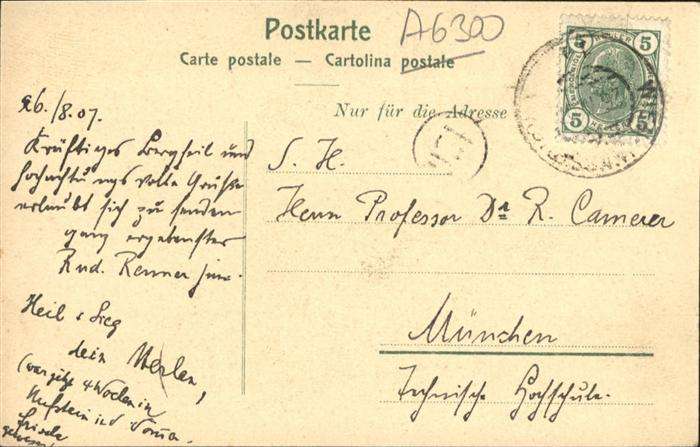 Postkarte
A6300
Carte postale — Cartolina postale
Nur für die Adresse
5 5
5 5
26./8.07.
Kräftiges Bergheil und
hochachtungsvolle Grüße
erlaubt sich zu senden
ganz ergebenster
Rud. Renner jun.
Heil & Sieg
dein
(war jetzt 4 Wochen in
Kufstein
S. H.
Herrn Professor Dr R. Camerer
München
Technische Hochschule.